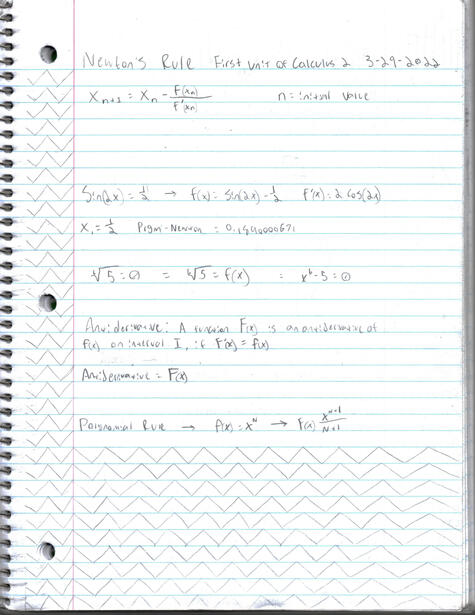 Newton's Rule First unit of Calculus 2 3-29-2022
X_{n+1} = X_n - f(x_n)/f'(x_n) n = initial value
Sin(2x) = 1/2 → f(x) = sin(2x) - 1/2 f'(x) = 2 cos(2x)
X_1 = 1/2 Prgm-Newton =
⁶√5 = 0 = ⁶√5 = f(x) = x^6 - 5 = 0
Antiderivative: A function F(x) is an antiderivative of
f(x) on interval I, if F'(x) = f(x)
Antiderivative = F(x)
Polynomial Rule → f(x) = x^N → F(x) x^{N+1}/N+1